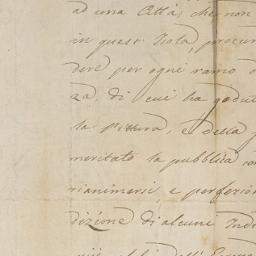 ad una Città, che non
in quest' Isola, procur
dere per ogni ramo
za, di cui ha godut
la Pittura, e della
meritato la pubblica
rianimersi, e perfezio
dizione di alcune Indo